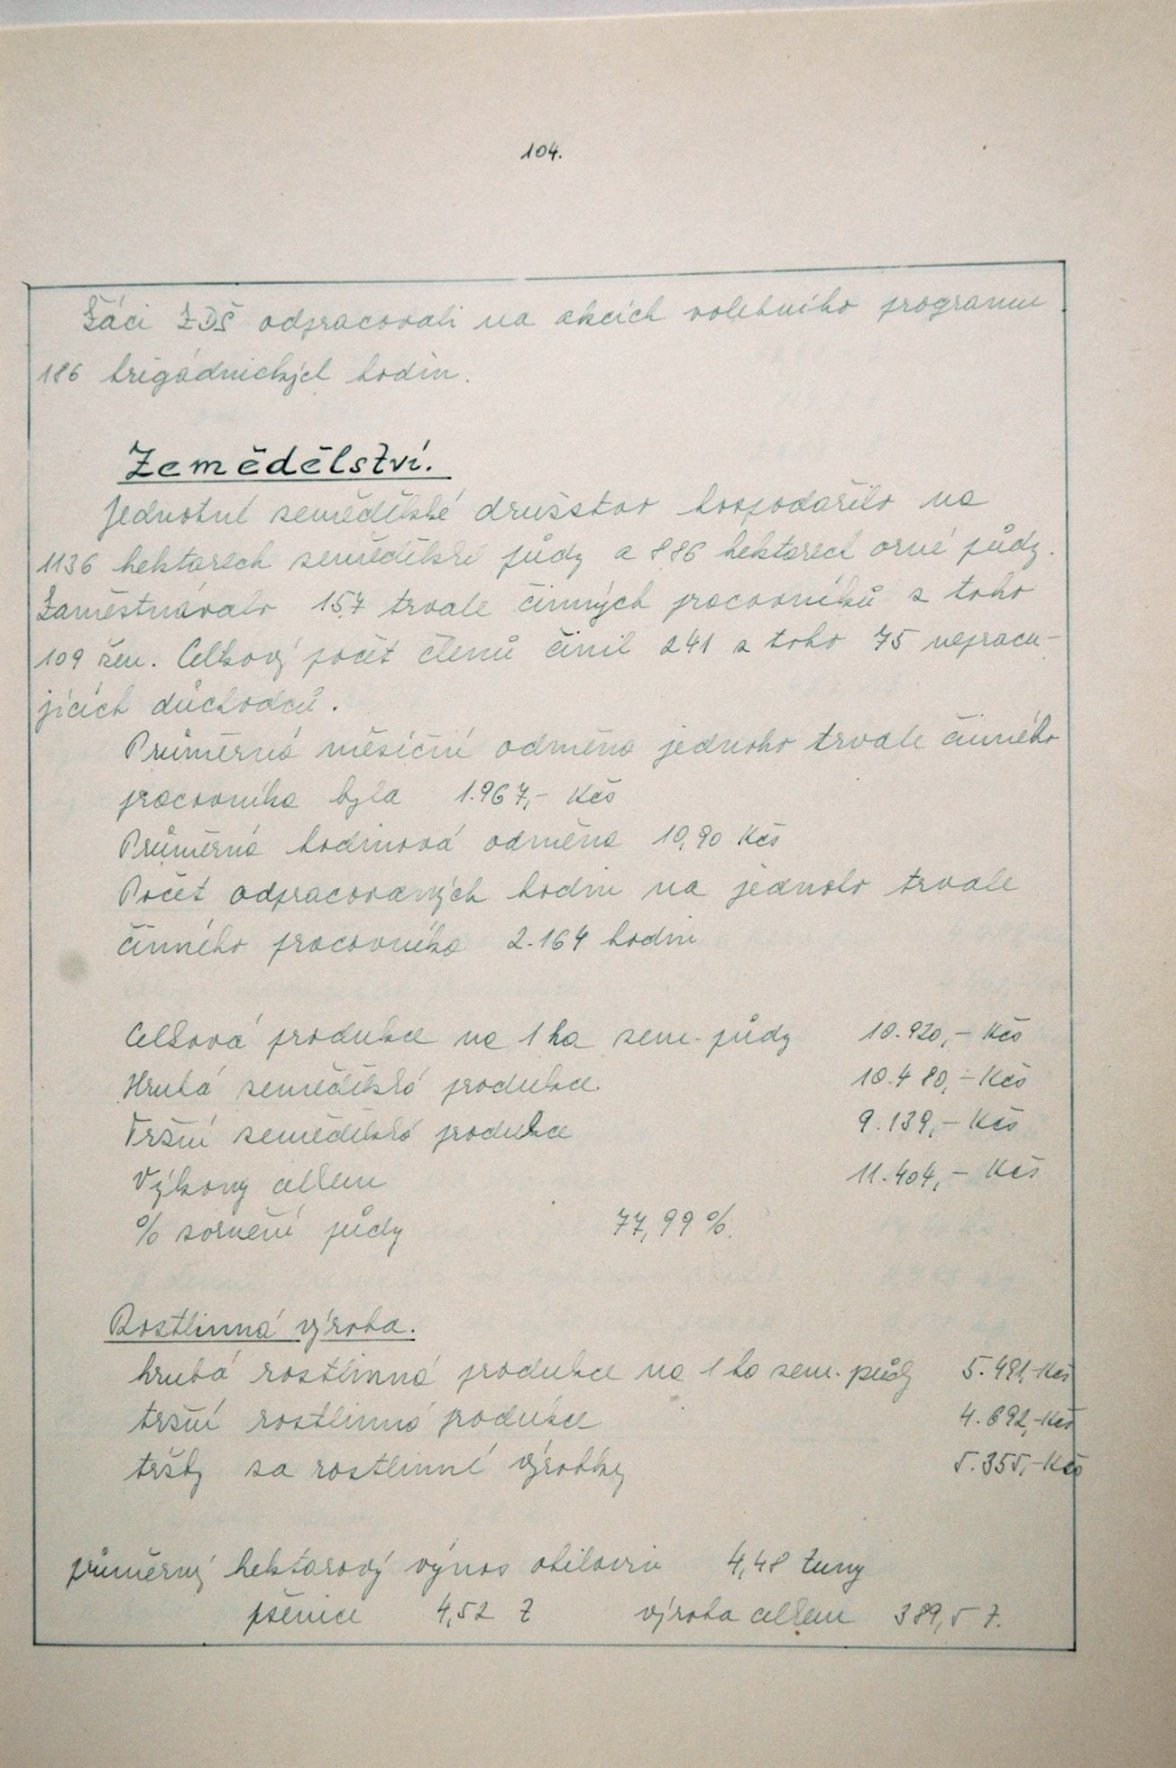 104.
Žáci ZDŠ odpracovali na akcích volebního programu
186 brigádnických hodin.
Zemědělství.
Jednotné zemědělské družstvo hospodařilo na
1136 hektarech zemědělské půdy a 886 hektarech orné půdy.
Zaměstnávalo 157 trvale činných pracovníků z toho
109 žen. Celkový počet členů činil 241 z toho 75 nepracu-
jících důchodců.
Průměrná měsíční odměna jednoho trvale činného
pracovníka byla 1.967,- Kčs
Průměrná hodinová odměna 10,90 Kčs
Počet odpracovaných hodin na jednoho trvale
činného pracovníka 2.164 hodin
Celková produkce na 1 ha zem. půdy 10.920,- Kčs
Hrubá zemědělská produkce 10.480,- Kčs
Tržní zemědělská produkce 9.139,- Kčs
Výkony celkem 11.404,- Kčs
% zornění půdy 77,99 %.
Rostlinná výroba.
hrubá rostlinná produkce na 1 ha zem. půdy 5.491,- Kčs
tržní rostlinná produkce 4.692,- Kčs
tržby za rostlinné výrobky 5.355,- Kčs
průměrný hektarový výnos obilovin 4,48 tuny
pšenice 4,52 t výroba celkem 389,5 t.